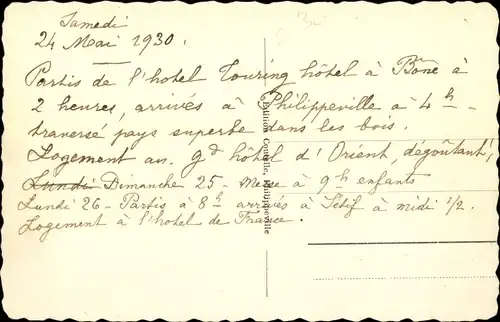 Samedi
24 Mai 1930.
Partis de l'hotel Touring hôtel à Bône à
2 heures, arrivés à Philippeville à 4 h -
traversé pays superbe dans les bois.
Logement au gd hôtel d'Orient, dégoûtant!
Lundi Dimanche 25 - Messe à 9h enfants
Lundi 26 - Partis à 8h arrivés à Sétif à midi 1/2
Logement à l'hotel de France.
Edition Philippeville